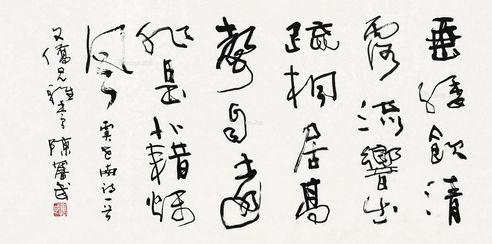 垂緌飲清
露流響出
疏桐居高
聲自遠
非是藉秋
風 虞世南詩一首
兄雅 陳